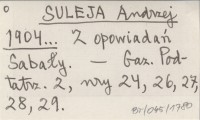 SULEJA Andrzej
1904... Z opowiadań
Sabały. — Gaz. Pod-
tatrz. 2, nry 24, 26, 27,
28, 29.